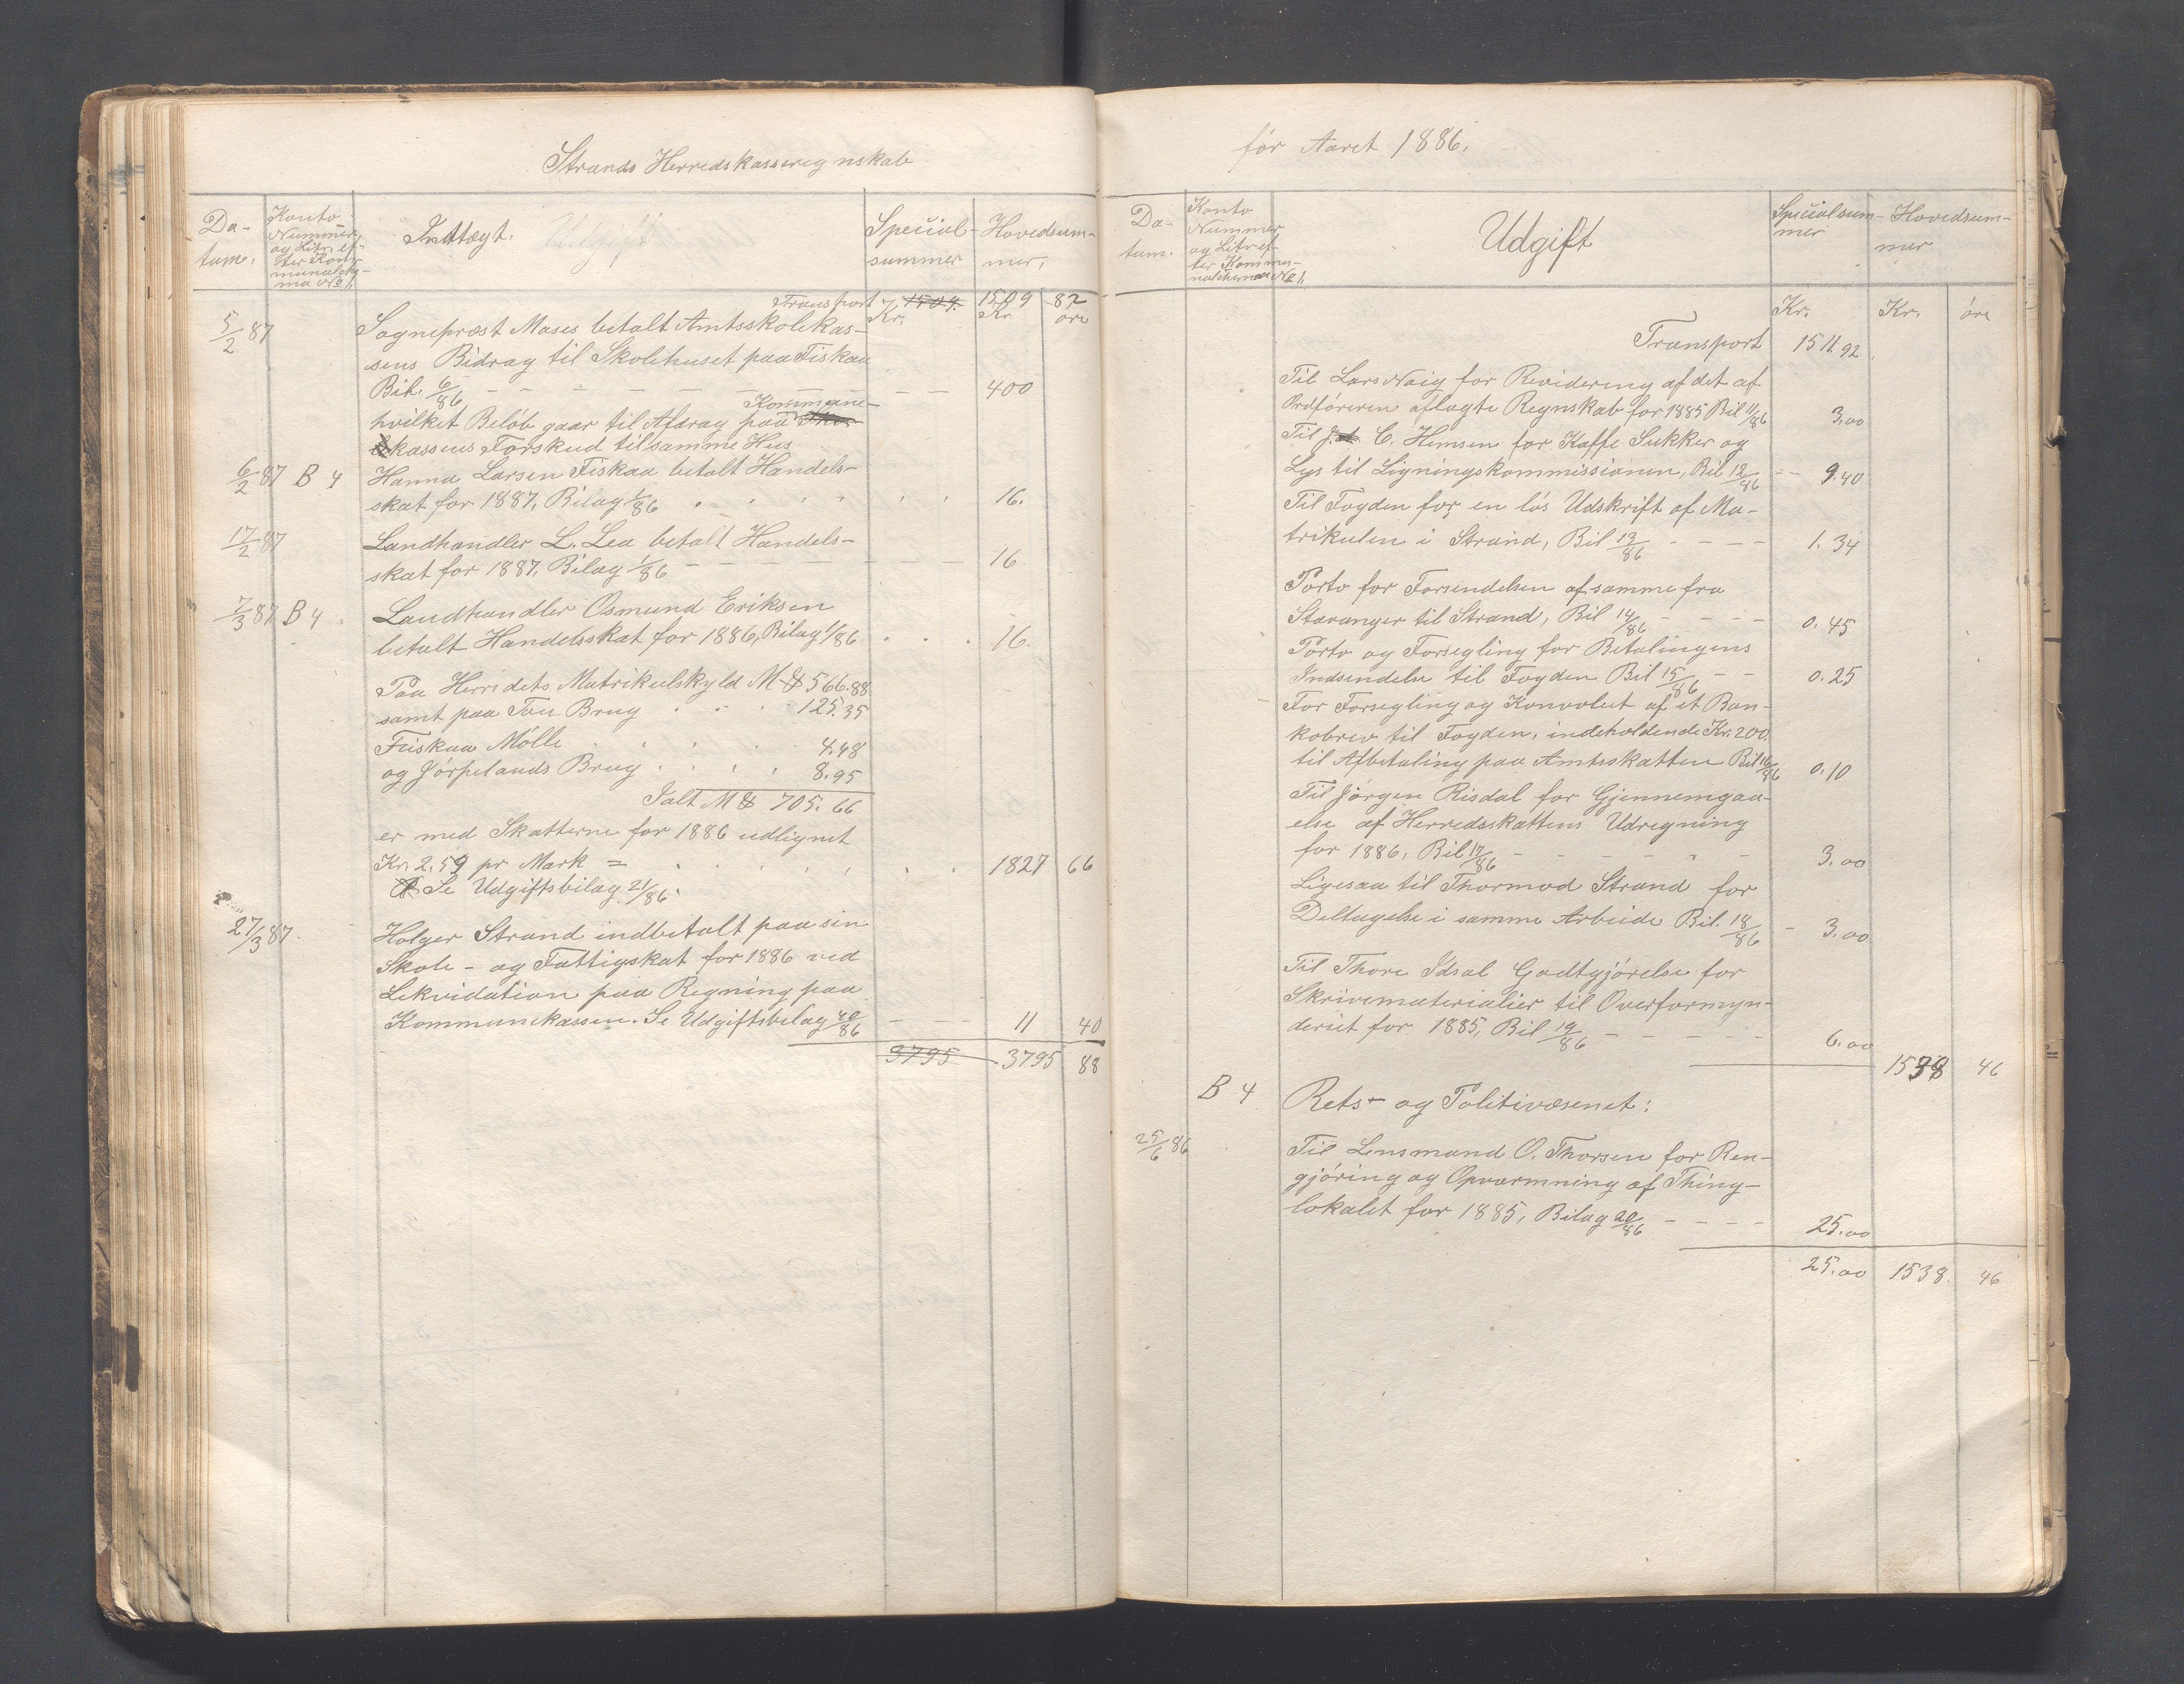 Strands Herredskasseregnskab
Da-
tum.
Konto
Nummer
og Litr. ef-
ter Kom-
munalske-
ma No 1.
Indtægt.
Special-
summer
Hovedsum-
mer.
Transport 1509. 1509 82
Kr. Kr øre
5/2 87 Sognepræst Moses betalt Amtsskolekas-
sens Bidrag til Skolehuset paa Fiskaa
Bil. 6/86 - - - - - - - - 400
Kommune-
hvilket Beløb gaar til Afdrag paa
kassens Forskud til samme Hus
6/2 87 B 4 Hanna Larsen Fiskaa betalt Handels-
skat for 1887, Bilag 1/86 16.
17/2 87 Landhandler L. Lea betalt Handels-
skat for 1887, Bilag 1/86 - - - - - - - - 16
7/3 87 B 4. Landhandler Osmund Eriksen
betalt Handelsskat for 1886, Bilag 1/86 . . . 16.
Paa Herredets Matrikulskyld M 566.88
samt paa Tou Brug . . . 125.35
Fiiskaa Mølle . . . . 4.48
og Jørpelands Brug . . . . 8.95
Ialt M 705.66
er med Skatterne for 1886 udlignet
Kr. 2,59 pr Mark = . . . . . . 1827 66
Se Udgiftsbilag 21/86.
27/3 87. Holger Strand indbetalt paa sin
Skole- og Fattigskat for 1886 ved
Lekvidation paa Regning paa
Kommunekassen. Se Udgiftsbilag 40/86 - - - 11 40
3795 3795 88
før Aaret 1886.
Da-
tum.
Konto
Nummer
og Litr ef-
ter Kommu-
nalskema No 1.
Udgift
Specialsum-
mer
Hovedsum-
mer
Kr. Kr. øre
Transport 1511.92
Til Lars Naig for Revidering af det af
Ordføreren aflagte Regnskab for 1885 Bil 11/86 3.00
Til J. C. Hemsen for Kaffe Sukker og
Lys til Ligningskommissionen, Bil 12/86 -- 9.40
Til Fogden for en løs Udskrift af Ma-
trikulen i Strand, Bil 13/86 - - - - 1.34
Porto for Forsendelsen af samme fra
Stavanger til Strand, Bil 14/86 - - - - 0.45
Porto og Forsegling for Betalingens
Indsendelse til Fogden Bil 15/86 - - 0.25
For Forsegling og Konvolut af et Ban-
kobrev til Fogden, indeholdende Kr. 200.
til Afbetaling paa Amtsskatten Bil 16/86 0.10
Til Jørgen Risdal for Gjennemgaa-
else af Herredsskattens Udregning
for 1886, Bil 17/86 - - - - - - 3.00
Ligesaa til Thormod Strand for
Deltagelse i samme Arbeide Bil. 18/86 - 3.00
Til Thore Idsal Godtgjørelse for
Skrivematerialier til Overformyn-
deriet for 1885, Bil 19/86 - - - - - 6.00
1538 46
B 4 Rets- og Politivæsenet:
25/6 86 Til Lensmand O. Thorsen for Ren-
gjøring og Opvarmning af Thing-
lokalet for 1885, Bilag 20/86 - - - - 25.00
25.00 1538. 46